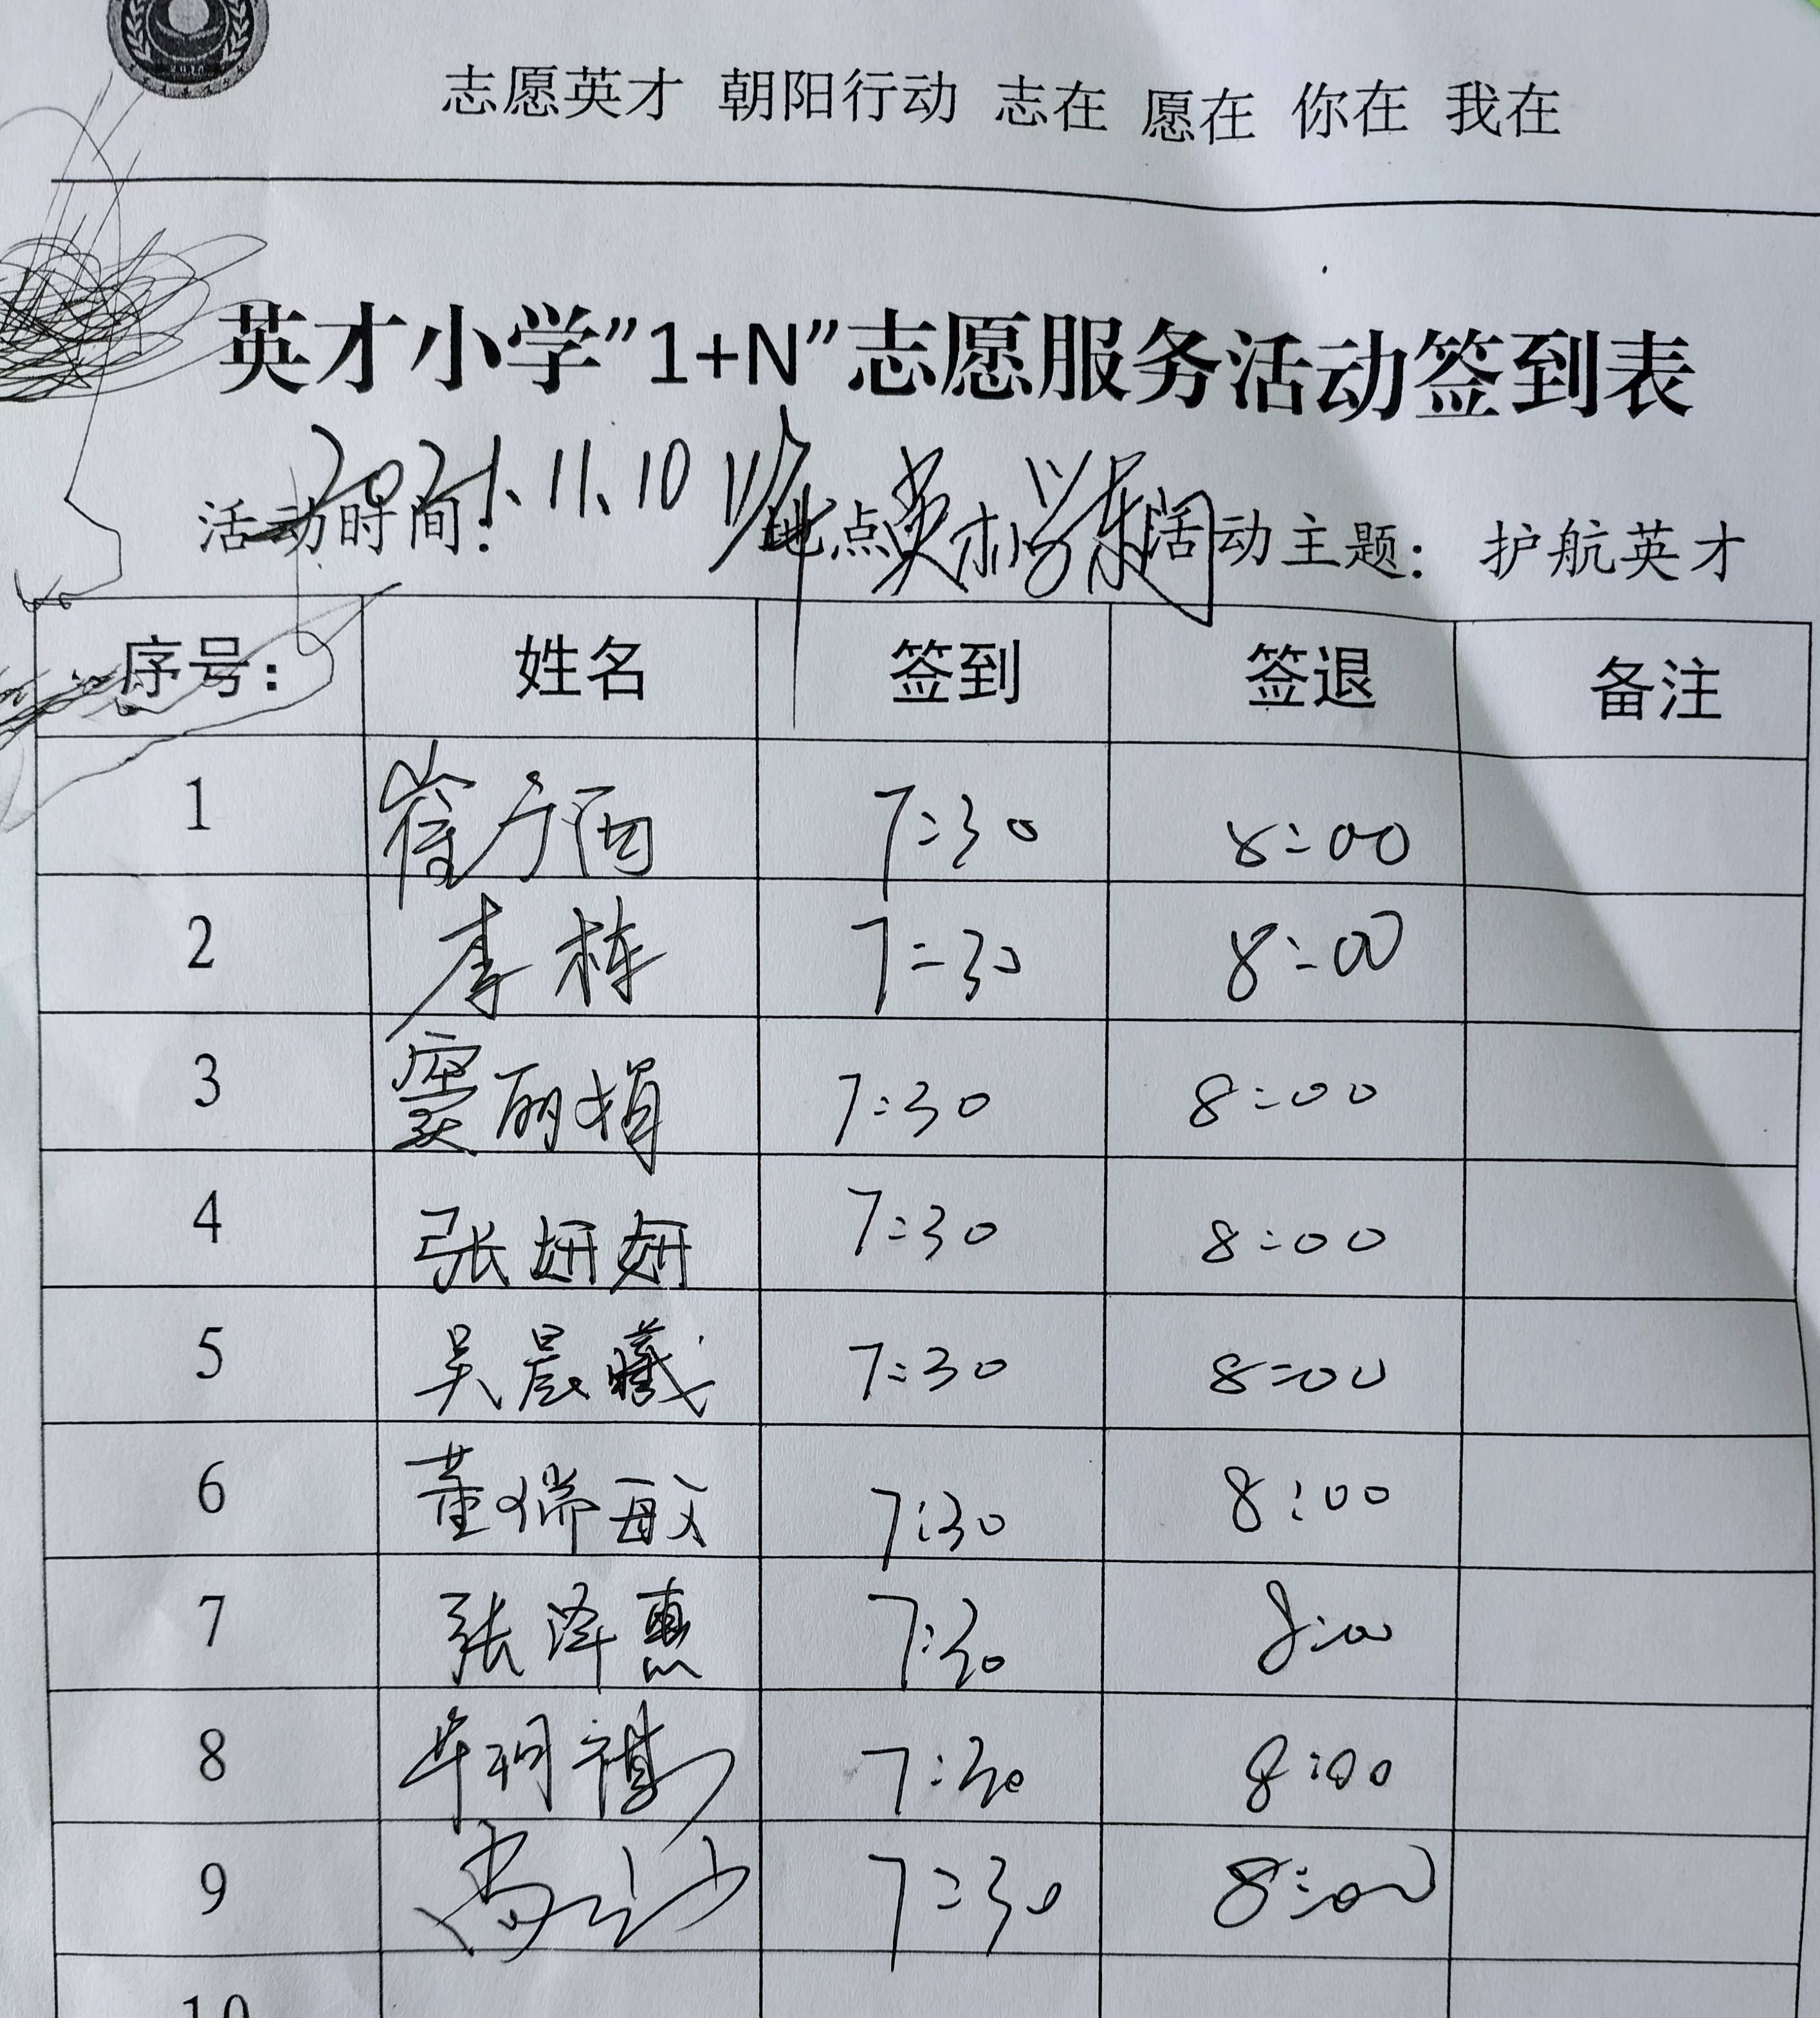 志愿英才 朝阳行动 志在 愿在 你在 我在
英才小学”1+N”志愿服务活动签到表
活动时间: 2021.11.10 地点 英才小学东 活动主题: 护航英才
序号: 姓名 签到 签退 备注
1 崔 7:30 8:00
2 李栋 7:30 8:00
3 窦丽娟 7:30 8:00
4 张妍妍 7:30 8:00
5 吴晨曦 7:30 8:00
6 董瑞敏 7:30 8:00
7 张泽惠 7:30 8:00
8 7:30 8:00
9 7:30 8:00
10